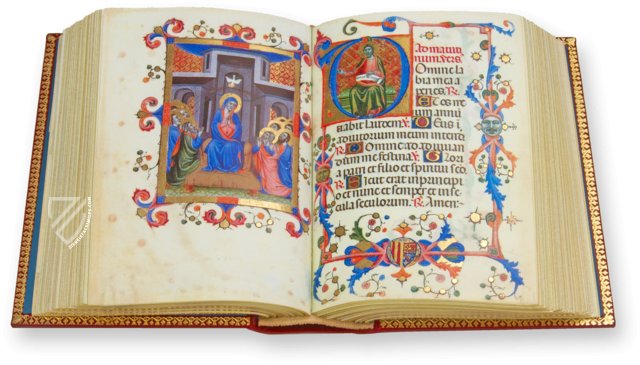 Ad matuti
num. vers.
Omine la
bia mea a
peries. R.
Et os me
um annū
tiabit laudem. V. Deus i
adiutorium meum intende
R. Domine ad adiuuan
dum me festina. V. Glori
a patri et filio et spiritui sā
R. Sicut erat in principi
o et nunc et semper et in se
cula seculorum. R. Amen.